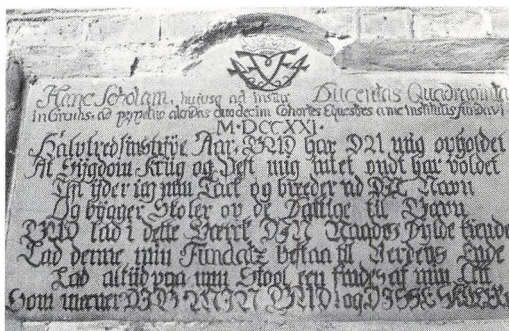 Hanc Scholam, hujusq ad instar Ducentas Quadraginta
ad perpetuo alendas duodecim Cohortes Equestres a me institutis fundavi
M·DCCXXI·
Halvtredsinstyve Aar, GUD har DU mig opholdet
At Sÿgdom Krüg og Pest mig intet ondt har voldet
Thi ÿder ieg min Tack og breeder ud DIT Navn
Og bÿgger Skoler op de Fattige til Gavn
GUD lad i dette Værck DIN Naades Fylde kiende
Lad denne min Fundatz bestaa til Verdens Ende
Lad altiid paa min Stool een findes af min Ætt
Som meener DIG MIN GUD og DISSE